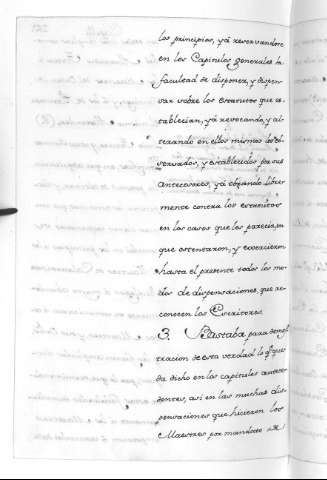 los principios, yá reservandose
en los Capitulos generales la
facultad de disponer, y dispen-
sar sobre los estatutos que es-
tablecian, yá revocando, y al-
terando en ellos mismos los ob-
servados, y establecidos por sus
antecesores, yá obrando libre-
mente contra los estatutos
en los casos que les parecia, ya
que ostentaron, y exercieron
hasta el presente todos los mo-
dos de dispensaciones, que re-
conocen los Escritores.
3. Bastaba para demos-
tracion de esta verdad lo q.e que-
da dicho en los capitulos antece-
dentes, asi en las muchas dis-
pensaciones que hicieron los
Maestres por mandatos